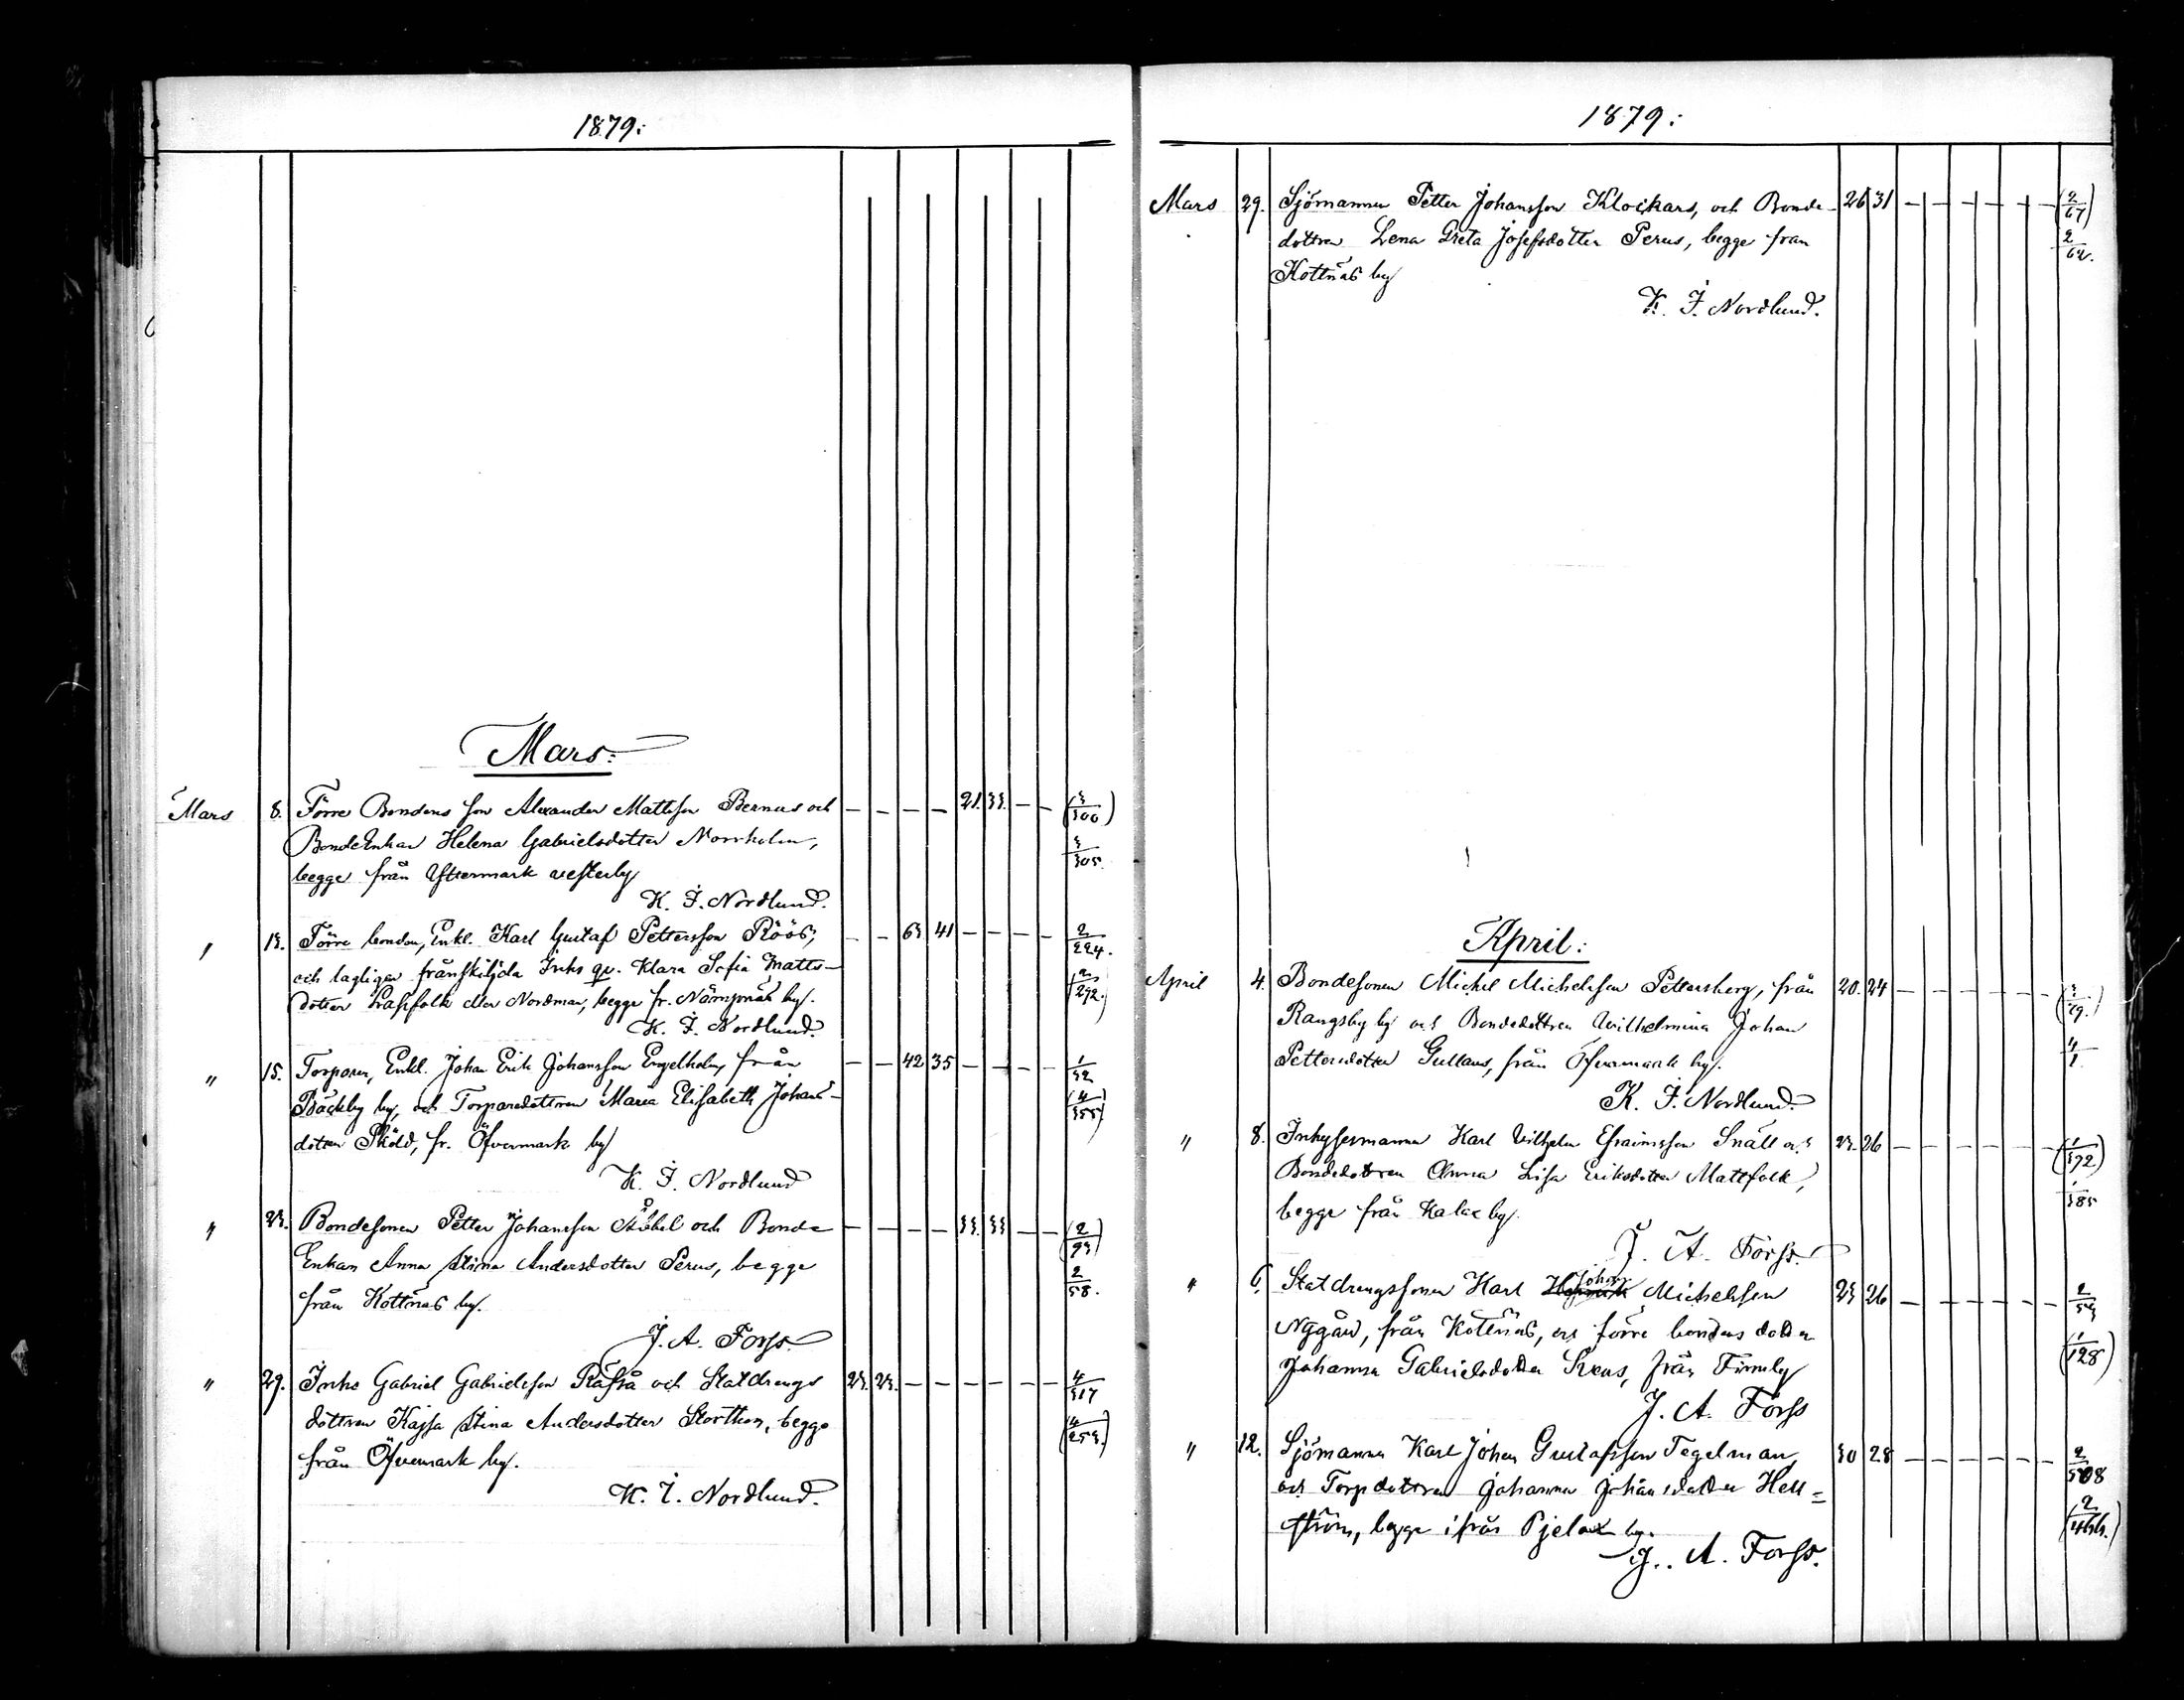 1879:
Mars:
Mars 8. Förre Bondens son Alexander Mattsson Bernas och — — — — 21. 33. — — (3/300)
BondeEnkan Helena Gabrielsdotter Norrholm, 3/305.
begge från Yttermark vesterby
K. I. Nordlund.
" 13. Förre bonden, Enkl. Karl Gustaf Pettersson Röös, — — 63 41 — — — — 2/224.
och lagligen frånskiljda Inhs qv. Klara Sofia Matts- (2/292.)
dotter eller Nordman, begge fr. Nämpnäs by.
K. I. Nordlund.
" 15. Torparen, Enkl. Johan Erik Johansson Engelholm, från — — 42 35 — — — — 1/32
Bäckby by, och Torparedottren Maria Elisabeth Johans- (4/355)
dotter Sköld, fr. Öfvermark by
K. I. Nordlund
" 23. Bondesonen Petter Johansson och Bonde — — — — 33. 33 — — (2/93)
Enkan Anna Stina Andersdotter Perus, begge 2/58.
från Kottnäs by.
J. A. Forss.
" 29. Inhs Gabriel Gabrielsson Råfså och Statdrengs 23. 23. — — — — — — 4/317
dottren Kajsa Stina Andersdotter Storthors, begge (4/253.)
från Öfvermark by.
K. I. Nordlund.
1879:
Mars 29. Sjömannen Petter Johansson Klockars, och Bonde- 26 31 — — — — — — (2/67)
dottren Lena Greta Josefsdotter Perus, begge från 2/62.
Kottnäs by
K. I. Nordlund.
April:
April 4. Bondesonen Michel Michelsson Pettersberg, från 20. 24 — — — — — — (3/79.)
Rangsby by och Bondedottren Wilhelmina Johan 4/1.
Pettersdotter Gullans, från Öfvermark by.
K. I. Nordlund.
" 8. Inhysesmannen Karl Vilhelm Efraimsson Snäll och 23. 26 — — — — — — (1/372)
Bondedottren Anna Lisa Eriksdotter Mattfolk, 1/385
begge från Kalax by.
J. A. Forss.
" 6. Statdrengssonen Karl Johan Michelsson 23 26 — — — — — — 2/53
Nygård, från Kottnäs, och förre bondens dotter (1/128)
Johanna Gabrielsdotter Svens, från Finnby
J. A. Forss
" 12. Sjömannen Karl Johan Gustafsson Tegelman, 30 28 — — — — — — 2/508
och Torpdottren Johanna Johansdotter Hell= (2/466.)
ström, begge ifrån Pjelax by.
J. A. Forss.